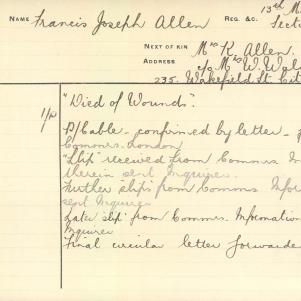 NAME Francis Joseph Allen REG. &C. 13th M
Secti
NEXT OF KIN Mrs K. Allen.
ADDRESS c/o Mrs W. Wal
235. Wakefield St. Cit
"Died of Wounds".
P/Cable - confirmed by letter -
Commrs. London
"Slip" received from Commrs.
therein sent Inquirer.
Further slips from Comms Infor
sent Inquirer
Later slip from Commrs. Information
Inquirer
Final circular letter forwarde